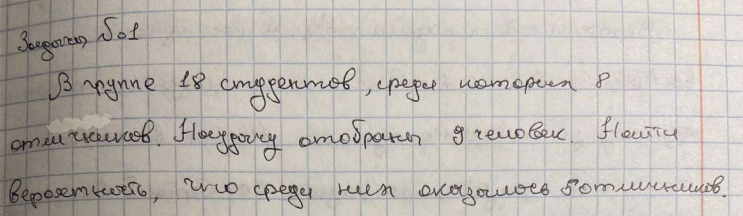 Задача №1
В группе 18 студентов, среди которых 8
отличников. Наудачу отобраны 9 человек. Найти
вероятность, что среди них оказалось 5 отличников.